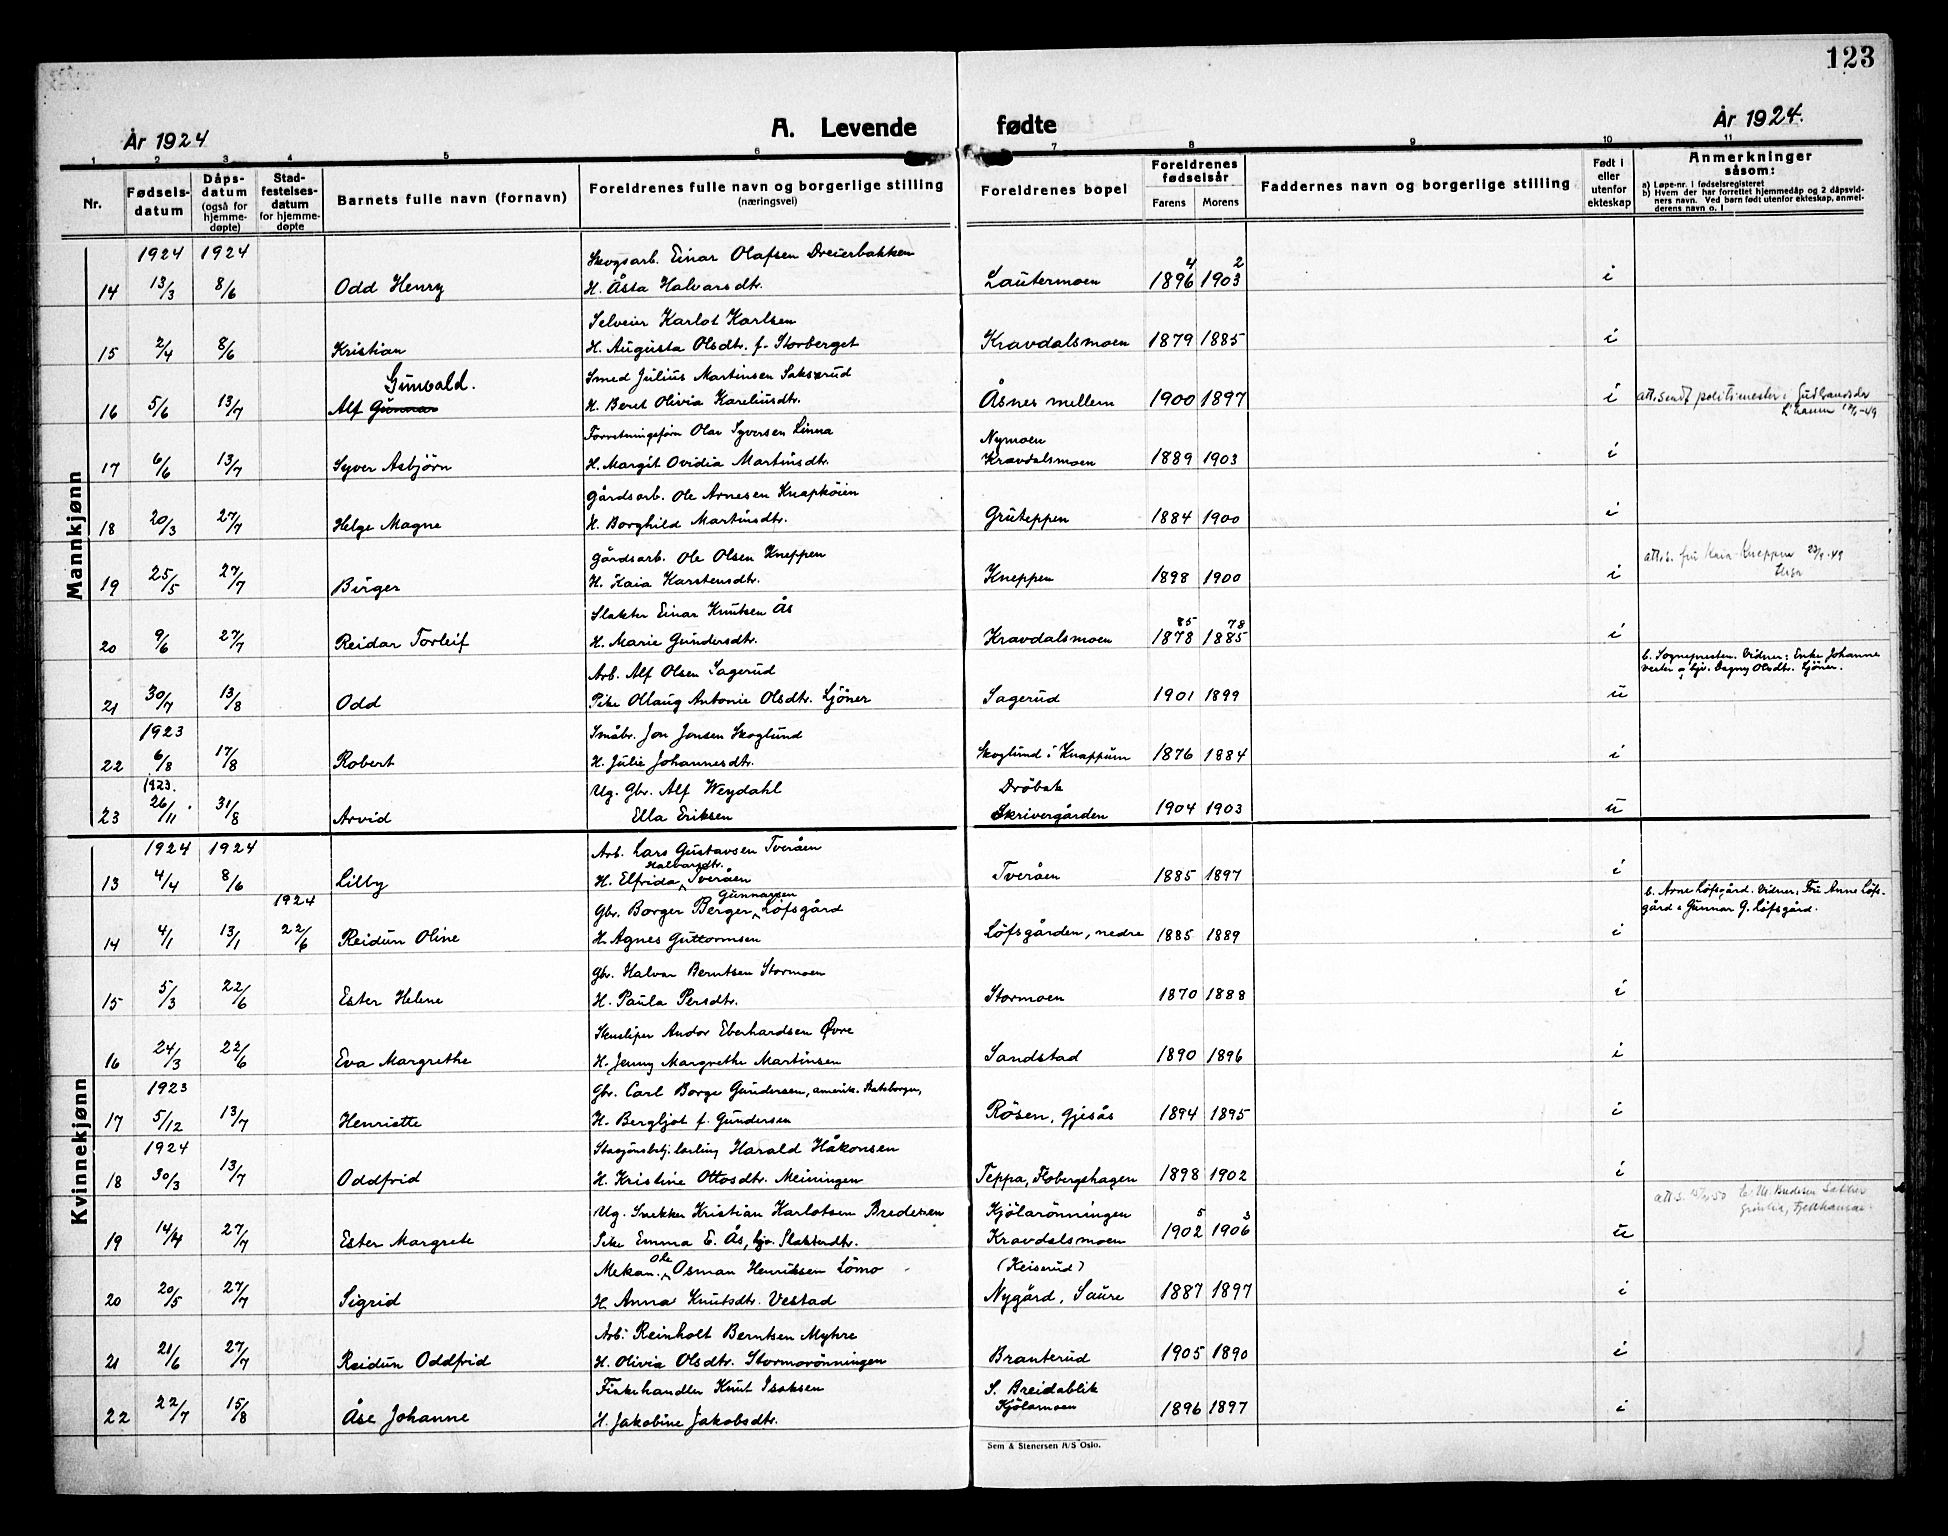 123
År 1924
A. Levende fødte
År 1924.
1 2 3 4 5 6 7 8 9 10 11
Nr.
Fødselsdatum
Dåpsdatum (også for hjemmedøpte)
Stadfestelsesdatum for hjemmedøpte
Barnets fulle navn (fornavn)
Foreldrenes fulle navn og borgerlige stilling (næringsvei)
Foreldrenes bopel
Foreldrenes fødselsår
Farens Morens
Faddernes navn og borgerlige stilling
Født i eller utenfor ekteskap
Anmerkninger såsom:
a) Løpe-nr. i fødselsregisteret
b) Hvem der har forrettet hjemmedåp og 2 dåpsvidners navn. Ved barn født utenfor ekteskap, anmelderens navn o. l.
Mannkjønn
1924 1924 Skogsarb. Einar Olafsen Dreierbakken 4 2
14 13/3 8/6 Odd Henry H. Åsta Halvarsdtr. Lautermoen 1896 1903 i
Selveier Karlot Karlsen
15 2/4 8/6 Kristian H. Augusta Olsdtr. f. Storberget Kravdalsmoen 1879 1885 i
Gunvald. Smed Julius Martinsen Sakserud
16 5/6 13/7 Alf Gunnar H. Beret Olivia Kareliusdtr. Åsnes mellem 1900 1897 i att. sendt politimester i Gudbrandsdal
L'hamm -49
Forretningsførn Olar Syversen Linna Nymoen
17 6/6 13/7 Syver Asbjörn H. Margit Ovidia Martinsdtr. Kravdalsmoen 1889 1903 i
Gårdsarb. Ole Arnesen Knapköien
18 20/3 27/7 Helge Magne H. Borghild Martinsdtr. Gruteppen 1884 1900 i
Gårdsarb. Ole Olsen Kneppen att. s. fru Kaia Kneppen -49
19 25/5 27/7 Birger H. Kaia Karstensdtr. Kneppen 1898 1900 i
Slakter Einar Knutsen Ås 85 78
20 9/6 27/7 Reidar Torleif H. Marie Gundersdtr. Kravdalsmoen 1878 1885 i
Arb. Alf Olsen Sagerud b. Sognepresten. Vidner: Enke Johanne
21 30/7 13/8 Odd Pike Ollaug Antonie Olsdtr. Ljöner Sagerud 1901 1899 u Dagny Olsdtr. Ljöner.
1923 Småbr. Jon Jonsen Skoglund
22 6/8 17/8 Robert H. Julie Johannesdtr. Skoglund i Knappum 1876 1884 i
1923. Ug. Gbr. Alf Weydahl Dröbak
23 26/11 31/8 Arvid Ella Eriksen Skrivergården 1904 1903 u
Kvinnekjønn
1924 1924 Arb. Lars Gustavsen Tveråen
Halvarsdtr.
13 4/4 8/6 Lilly H. Elfrida Tveråen Tveråen 1885 1897 i
1924 Gunnarsen
Gbr. Borger Berger Löfsgård b. Arne Löfsgård. Vidner: Fru Anne Löfsgård & Gunnar G. Löfsgård.
14 4/1 13/1 22/6 Reidun Oline H. Agnes Guttormsen Löfsgården, nedre 1885 1889 i
Gbr. Halvar Berntsen Stormoen
15 5/3 22/6 Ester Helene H. Paula Persdtr. Stormoen 1870 1888 i
Andor Eberhardsen Övre
16 24/3 22/6 Eva Margrethe H. Jenny Margrethe Martinsen Sandstad 1890 1896 i
1923 Gbr. Carl Borge Gundersen, amerik. Statsborger,
17 5/12 13/7 Henriette H. Bergljot f. Gundersen Rösen, Gjesås 1894 1895 i
1924 Harald Håkonsen
18 30/3 13/7 Oddfrid H. Kristine Ottosdtr. Meiningen Teppa, Flobergshagen 1898 1902 i
Ug. Snekker Kristian Karlotsen Bredesen Kjölarönningen 5 3
19 14/4 27/7 Ester Margrete Pike Emma E. Ås, hjv. Slakterdtr. Kravdalsmoen 1902 1906 u
Ole
Mekan. Osman Henriksen Lömo (Keiserud)
20 20/5 27/7 Sigrid H. Anna Knutsdtr. Vestad Nygård, Saure 1887 1897 i
Arb. Reinholt Berntsen Myhre
21 21/6 27/7 Reidun Oddfrid H. Olivia Olsdtr. Stormorönningen Branterud 1905 1890 i
Fiskehandler Knut Isaksen S. Breidablik
22 22/7 15/8 Åse Johanne H. Jakobine Jakobsdtr. Kjölamoen 1896 1897 i
Sem & Stenersen A/S Oslo.